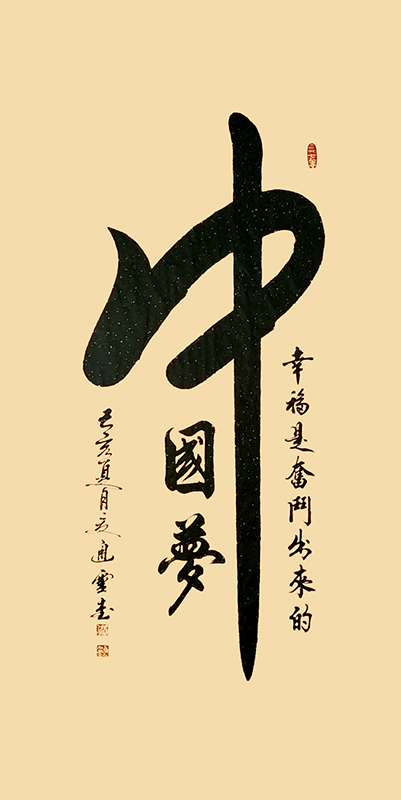 中國夢
幸福是奮鬥出來的
己亥夏月